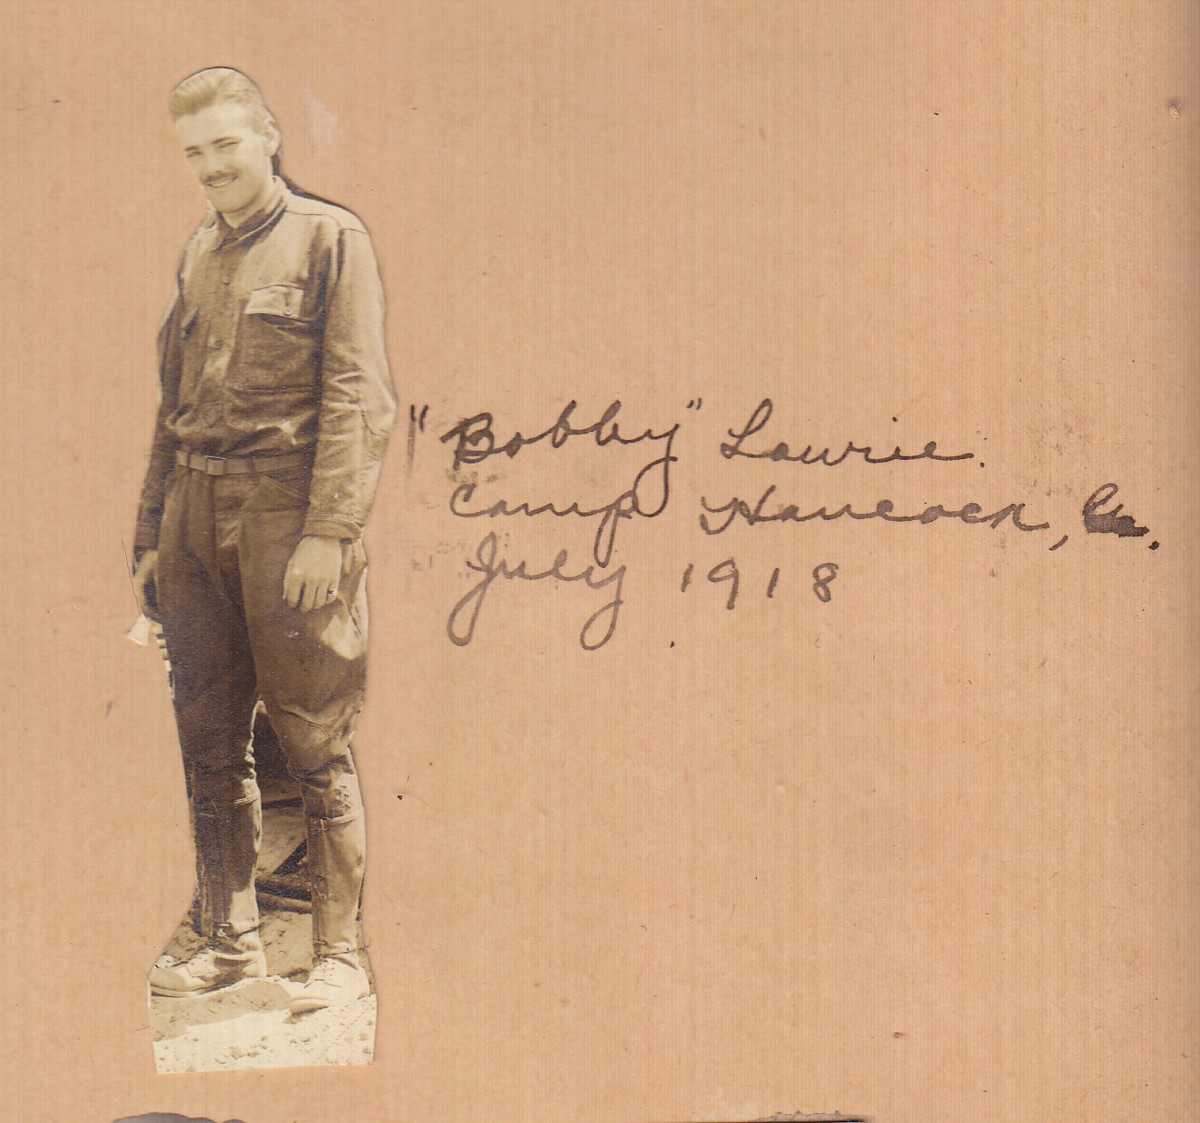 "Bobby" Lawrie.
Camp Hancock, Ga.
July 1918